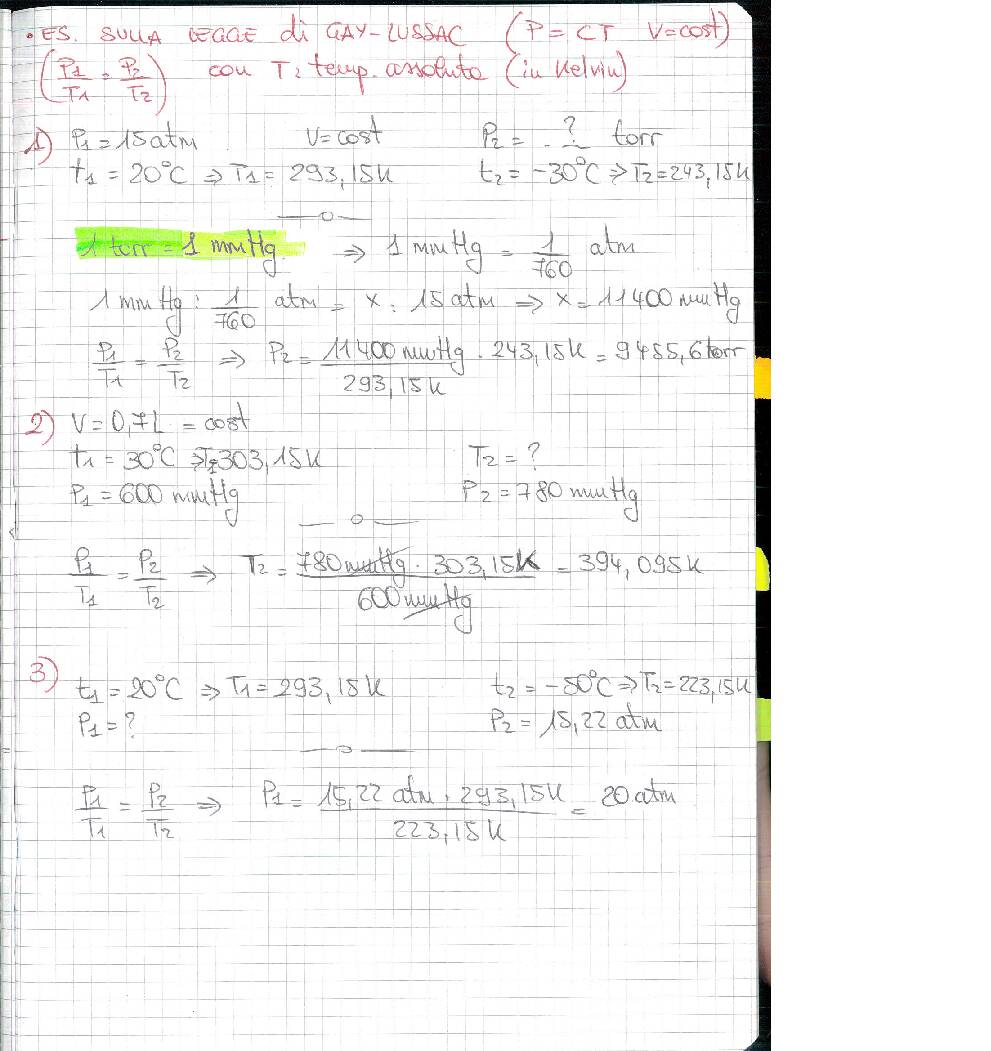 • ES. SULLA LEGGE di GAY-LUSSAC (P = CT V=cost)
(P1/T1 = P2/T2) con T: temp. assoluta (in Kelvin)
1) P1 = 15 atm V=cost P2 = ...?... torr
t1 = 20°C ⇒ T1 = 293,15K t2 = -30°C ⇒ T2=243,15K
1 torr = 1 mmHg. ⇒ 1 mmHg = 1/760 atm
1 mmHg : 1/760 atm = x : 15 atm ⇒ x = 11400 mmHg
P1/T1 = P2/T2 ⇒ P2 = 11400 mmHg · 243,15K / 293,15K = 9455,6 torr
2) V = 0,7L = cost
t1 = 30°C ⇒ T1=303,15K T2 = ?
P1 = 600 mmHg P2 = 780 mmHg
P1/T1 = P2/T2 ⇒ T2 = 780 mmHg · 303,15K / 600 mmHg = 394,095K
3) t1 = 20°C ⇒ T1 = 293,15K t2 = -50°C ⇒ T2=223,15K
P1 = ? P2 = 15,22 atm
P1/T1 = P2/T2 ⇒ P1 = 15,22 atm · 293,15K / 223,15K = 20 atm